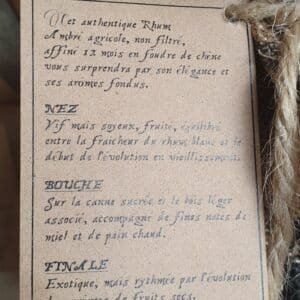 Cet authentique Rhum
Ambré agricole, non filtré,
affiné 12 mois en foudre de chêne
vous surprendra par son élégance et
ses aromes fondus.
NEZ
Vif mais soyeux, fruité, équilibré
entre la fraîcheur du rhum blanc et le
début de l'évolution en vieillissement.
BOUCHE
Sur la canne sucrée et le bois léger
associé, accompagné de fines notes de
miel et de pain chaud.
FINALE
Exotique, mais rythmée par l'évolution
de fruits secs.